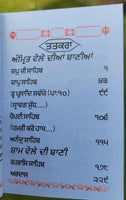 ਤਤਕਰਾ
ਅੰਮ੍ਰਿਤ ਵੇਲੇ ਦੀਆਂ ਬਾਣੀਆਂ
ਜਪੁ ਜੀ ਸਾਹਿਬ ੧
ਜਾਪੁ ਸਾਹਿਬ ੪੩
ਤ੍ਵ ਪ੍ਰਸਾਦਿ ਸਵੱਯੇ (ਪਾ:੧੦) ੯੯
(ਸ੍ਰਾਵਗ ਸੁੱਧ....)
ਚੌਪਈ ਸਾਹਿਬ ੧੦੬
(ਹਮਰੀ ਕਰੋ ਹਾਥ....)
ਅਨੰਦੁ ਸਾਹਿਬ ੧੧੯
ਸ਼ਾਮ ਵੇਲੇ ਦੀ ਬਾਣੀ
ਰਹਰਾਸਿ ਸਾਹਿਬ
ਅਰਦਾਸ ੨੨੯